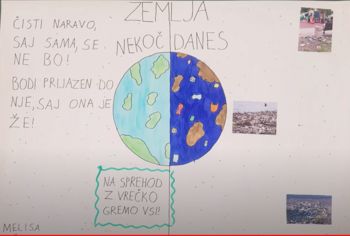 ZEMLJA
NEKOČ DANES
ČISTI NARAVO,
SAJ SAMA, SE
NE BO!
BODI PRIJAZEN DO
NJE, SAJ ONA JE
ŽE!
NA SPREHOD
Z VREČKO
GREMO VSI!
MELISA